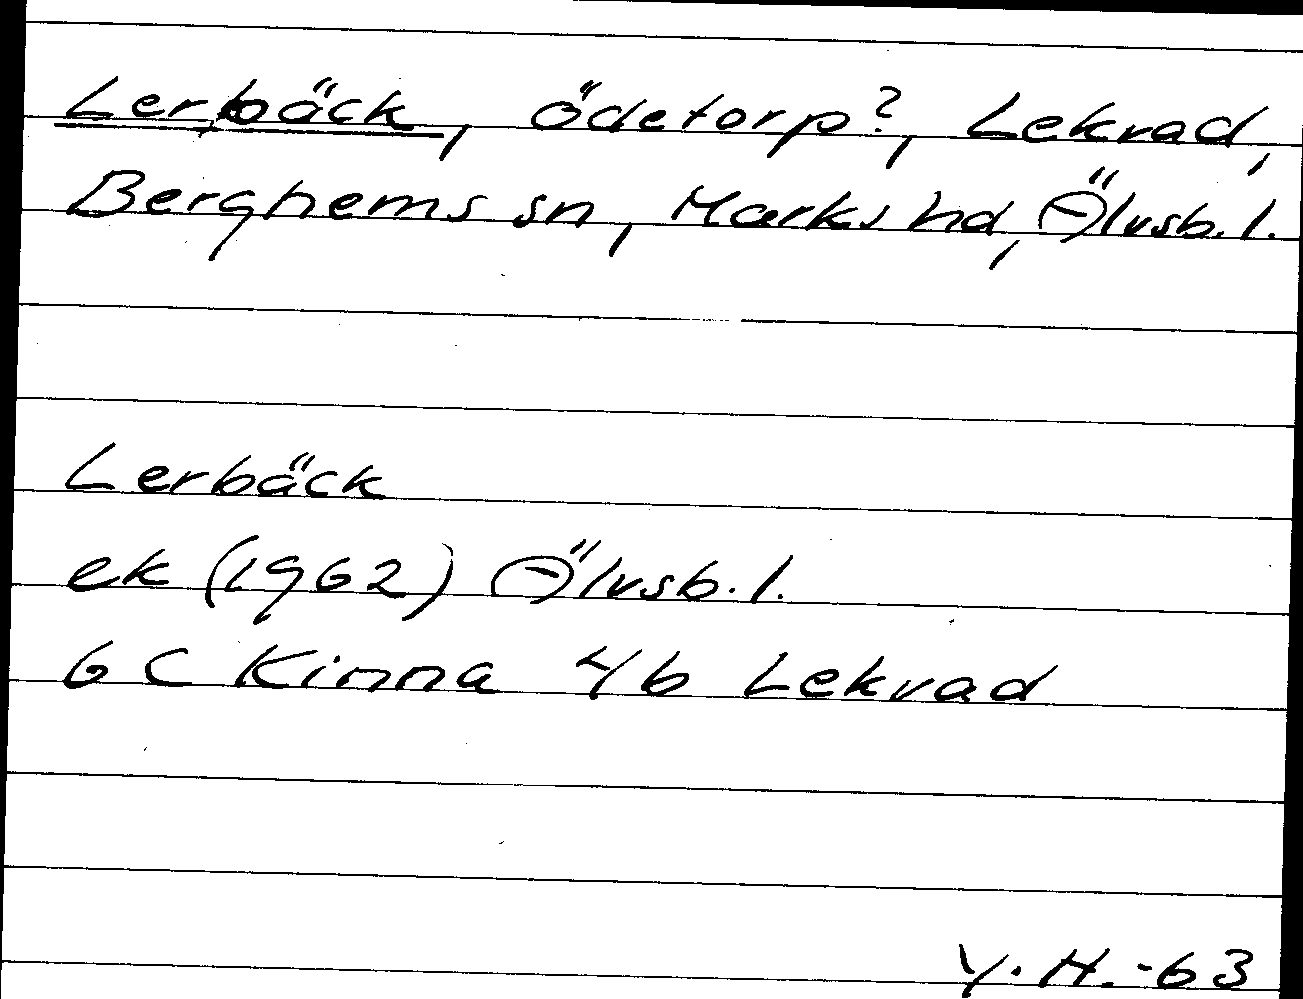 Lerbäck, ödetorp?, Lekvad,
Berghems sn, Marks hd, Älvsb. l.
Lerbäck
ek (1962) Älvsb. l.
6 C Kinna 4b Lekvad
Y. H. -63